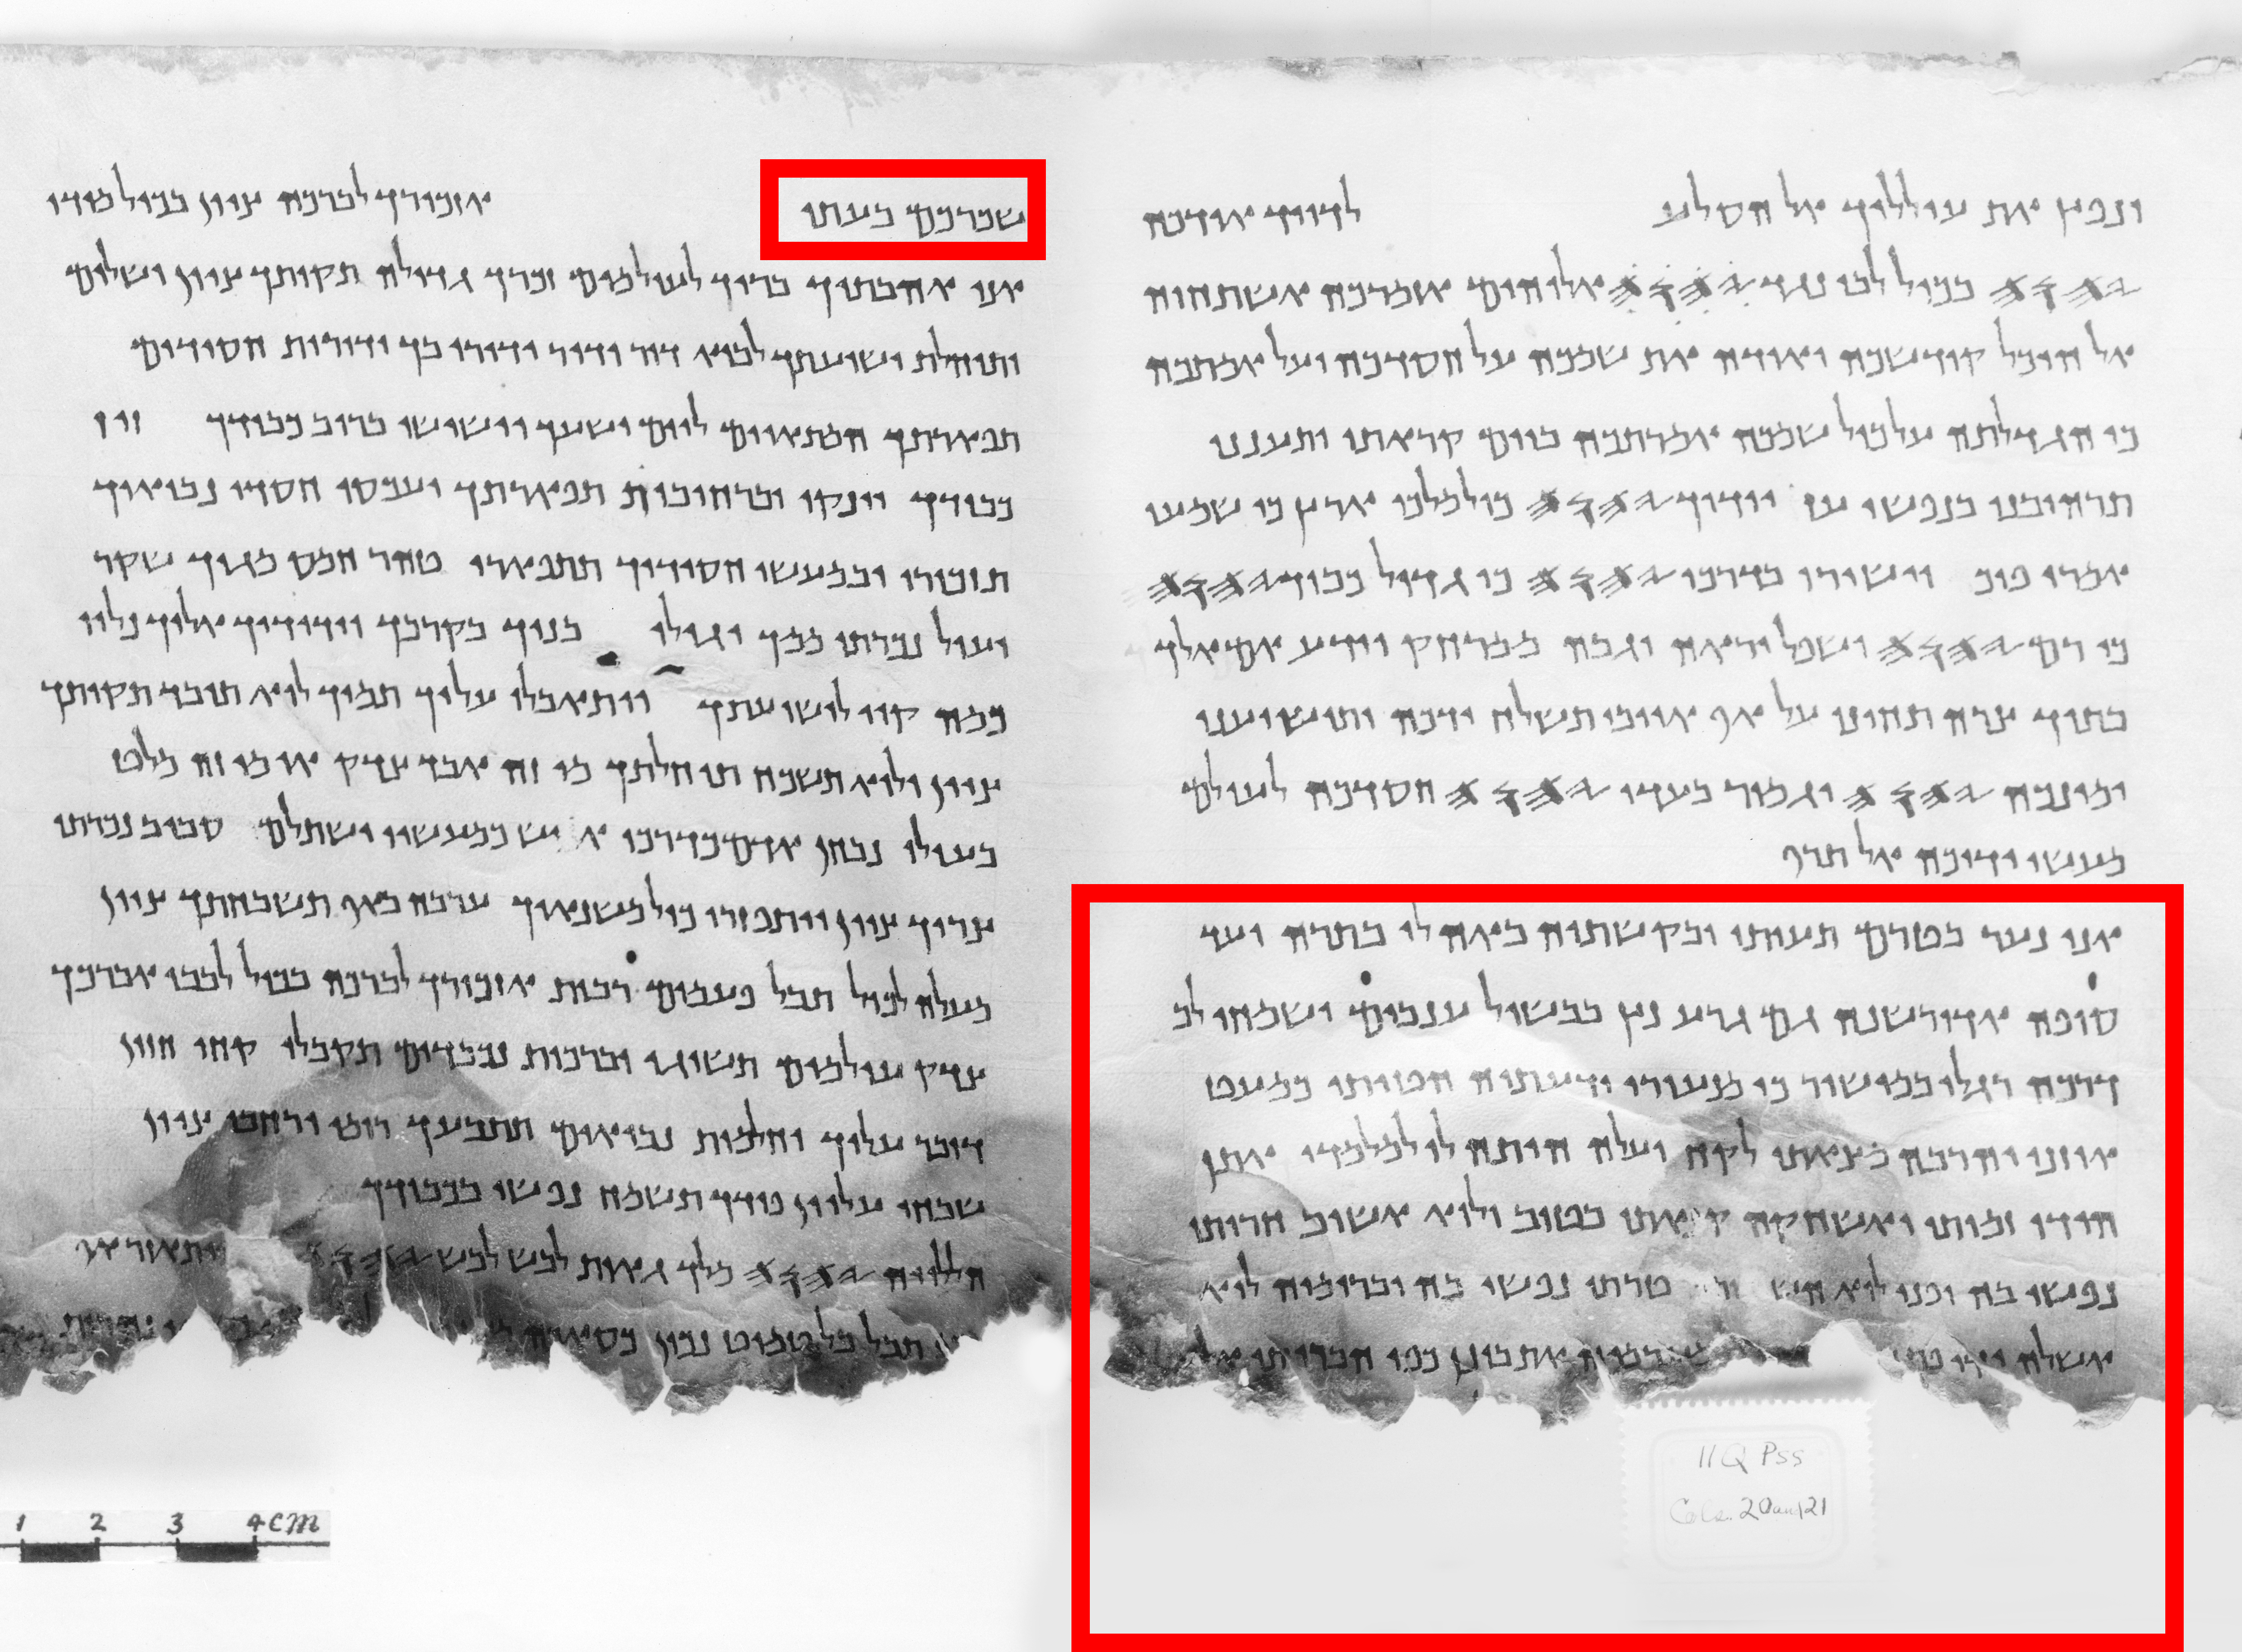 ונפץ את עולליך אל הסלע לדויד אודכה
𐤉𐤄𐤅𐤄 בכול לבי נגד 𐤉𐤄𐤅𐤄 אלוהים אזמרכה אשתחוה
אל היכל קודשכה ואודה את שמכה על חסדכה ועל אמתכה
כי הגדלתה על כול שמכה אמרתכה ביום קראתי ותענני
תרהיבני בנפשי עז יודוך 𐤉𐤄𐤅𐤄 כול מלכי ארץ כי שמעו
אמרי פיכ וישירו בדרכי 𐤉𐤄𐤅𐤄 כי גדול כבוד 𐤉𐤄𐤅𐤄
כי רם 𐤉𐤄𐤅𐤄 ושפל יראה וגבה ממרחק יידע אם אלך
בתוך צרה תחיני על אף אויבי תשלח ידכה ותושיעני
ימינכה 𐤉𐤄𐤅𐤄 יגמור בעדי 𐤉𐤄𐤅𐤄 חסדכה לעולם
מעשי ידיכה אל תרף
אני נער בטרם תעיתי ובקשתיה באה לי בתרה ועד
סופה אדורשנה גם גרע נץ בבשול ענבים ישמחו לב
דרכה רגלי במישור כי מנעורי ידעתיה הטיתי כמעט
אוזני והרבה מצאתי לקח ועלה היתה לי למלמדי אתן
הודי זמותי ואשחקה קנאתי בטוב ולוא אשוב חריתי
נפשי בה ופני לוא טרתי נפשי בה וברומיה לוא
אשלה ידי אתבונן כפי הברותי אל
שכרכם בעתו אזכירך לברכה ציון בכול מודי
אני אהבתיך ברוך לעולמים זכרך גדולה תקותך ציון ושלום
ותוחלת ישועתך לבוא דור ודור ידורו בך ודורות חסידים
תפארתך המתאוים ליום ישעך וישישו ברוב כבודך זיז
כבודך יינקו וברחובות תפארתך יעכסו חסדי נביאיך
תזכורי ובמעשי חסידיך תתפארי טהר חמס מגוך שקר
ועול נכרתו ממך יגילו בניך בקרבך וידידיך אליך נלוו
כמה קוו לישועתך ויתאבלו עליך תמיך לוא תובד תקותך
ציון ולוא תשכח תוחלתך מי זה אבד צדק או מי זה מלט
בעולו נבחן אדם כדרכו איש כמעשיו ישתלם סביב נכרתו
צריך ציון ויתפזרו כול משנאיך ערבה באף תשבחתך ציון
מעלה לכול תבל פעמים רבות אזכירך לברכה בכול לבבי אברכך
צדק עולמים תשיגי וברכות נכבדים תקבלי קחי חזון
דובר עליך וחלמות נביאים תתבעך רומי ורחבי ציון
שבחי עליון פודך תשמח נפשי בכבודך
הללויה 𐤉𐤄𐤅𐤄 מלך גאות לבש לבש 𐤉𐤄𐤅𐤄 ויתאזר אף
תבל בל תמוט נכון
11Q Pss
Cols. 20 and 21
1 2 3 4 CM